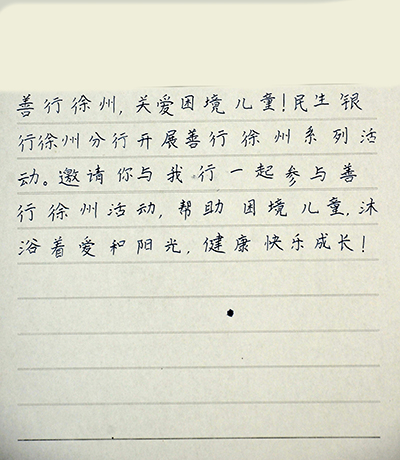 善行徐州,关爱困境儿童!民生银
行徐州分行开展善行徐州系列活
动。邀请你与我行一起参与善
行徐州活动,帮助困境儿童,沐
浴着爱和阳光,健康快乐成长!